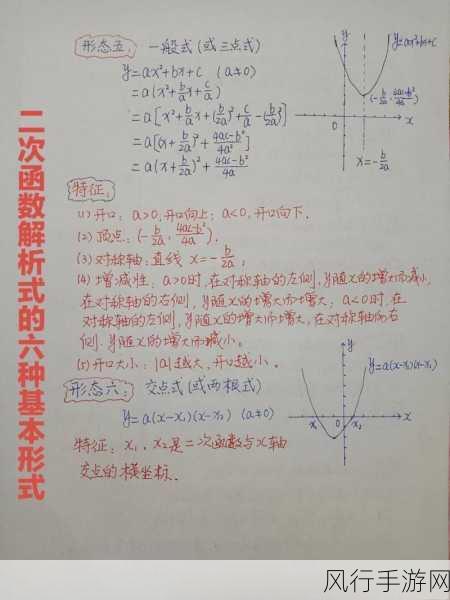 二次函数解析式的六种基本形式
形态五: 一般式(或三点式)
y=ax²+bx+c (a≠0)
=a(x²+b/a x+c/a)
=a[x²+b/a x+(b/2a)²+c/a-(b/2a)²]
=a[(x+b/2a)²+(4ac-b²)/4a²]
=a(x+b/2a)²+(4ac-b²)/4a
y
y=ax²+bx+c
(-b/2a, (4ac-b²)/4a)
0
x
x=-b/2a
特征:
(1) 开口: a>0,开口向上; a<0,开口向下.
(2) 顶点: (-b/2a, (4ac-b²)/4a).
(3) 对称轴:直线 x=-b/2a;
(4) 增减性: a>0时,在对称轴的左侧,y随x的增大而减小,
在对称轴的右侧,y随x的增大而增大; a<0时,在
对称轴的左侧,y随x的增大而增大,在对称轴的右
侧.y随x的增大而减小.
(5) 开口大小: |a|越大,开口越小.
形态六: 交点式(或两根式)
y=a(x-x₁)(x-x₂) (a≠0)
特征: x₁,x₂是二次函数与x轴
交点的横坐标.
y
y=a(x-x₁)(x-x₂)
x₁
0
x₂
x
风行手游网